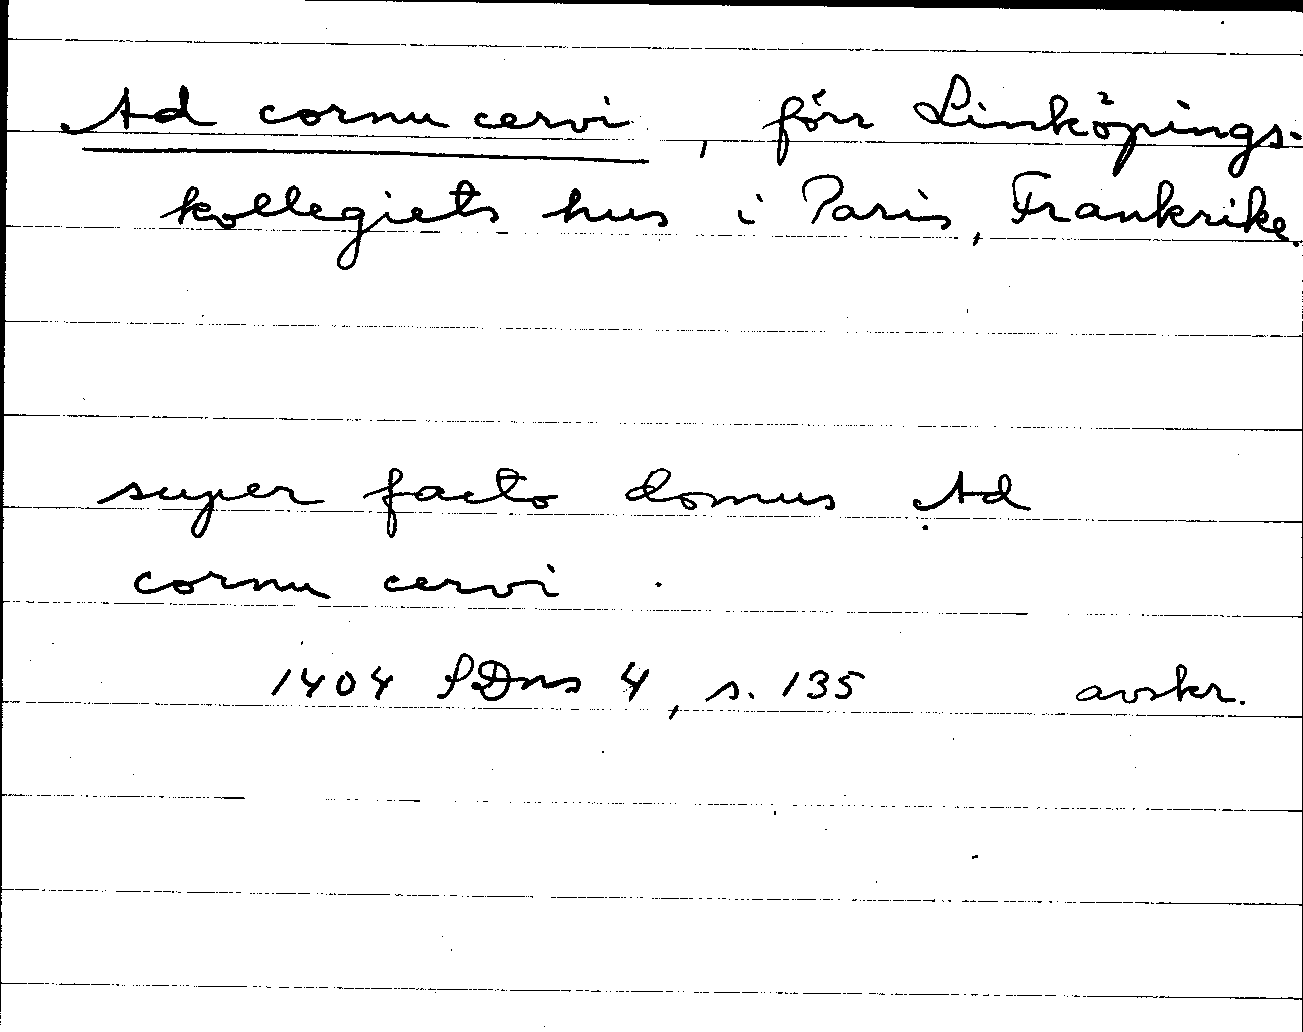 Ad cornu cervi, förr Linköpings-
kollegiets hus i Paris, Frankrike.
super facto domus Ad
cornu cervi
1404 SDns 4, s. 135 avskr.